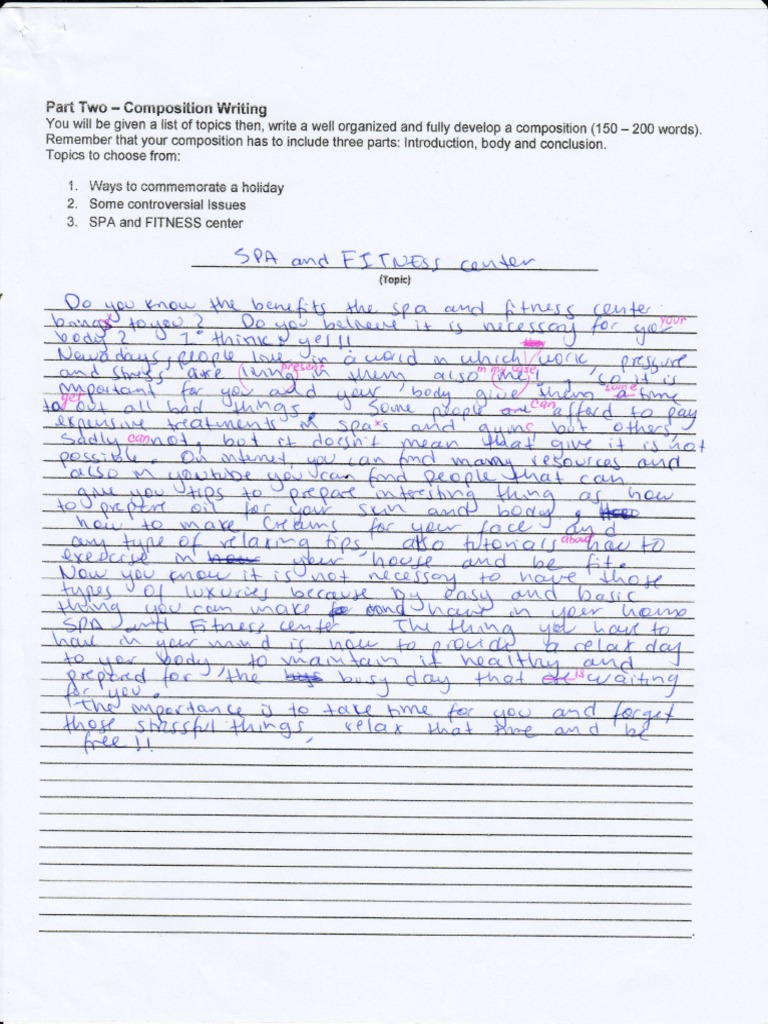 Part Two – Composition Writing
You will be given a list of topics then, write a well organized and fully develop a composition (150 – 200 words).
Remember that your composition has to include three parts: Introduction, body and conclusion.
Topics to choose from:
1. Ways to commemorate a holiday
2. Some controversial Issues
3. SPA and FITNESS center
SPA and FITNESS center
(Topic)
Do you know the benefits the spa and fitness center
brings to you? Do you believe it is necessary for your
body? I think yes!!
Nowadays, people live in a world in which work, pressure
and stress are living present in them, also in my case me!, so it is
important for you and your body give them a some time
to get out all bad things. Some people are can afford to pay
expensive treatments in spa's and gyms but others,
sadly cannot, but it doesn't mean that give it is not
possible. On internet, you can find many resources and
also in youtube you can find people that can
give you tips to prepare interesting thing as how
to prepare oil for your skin and body,
how to make creams for your face and
any type of relaxing tips, also tutorials about how to
exercise in your house and be fit.
Now you know it is not necessary to have those
types of luxuries because by easy and basic
thing you can make and have in your home
SPA and Fitness center. The thing you have to
have in your mind is how to provide a relax day
to yor body, to maintain it healthy and
prepared for the busy day that is waiting
for you.
The importance is to take time for you and forget
those stressful things, relax that time and be
free!!